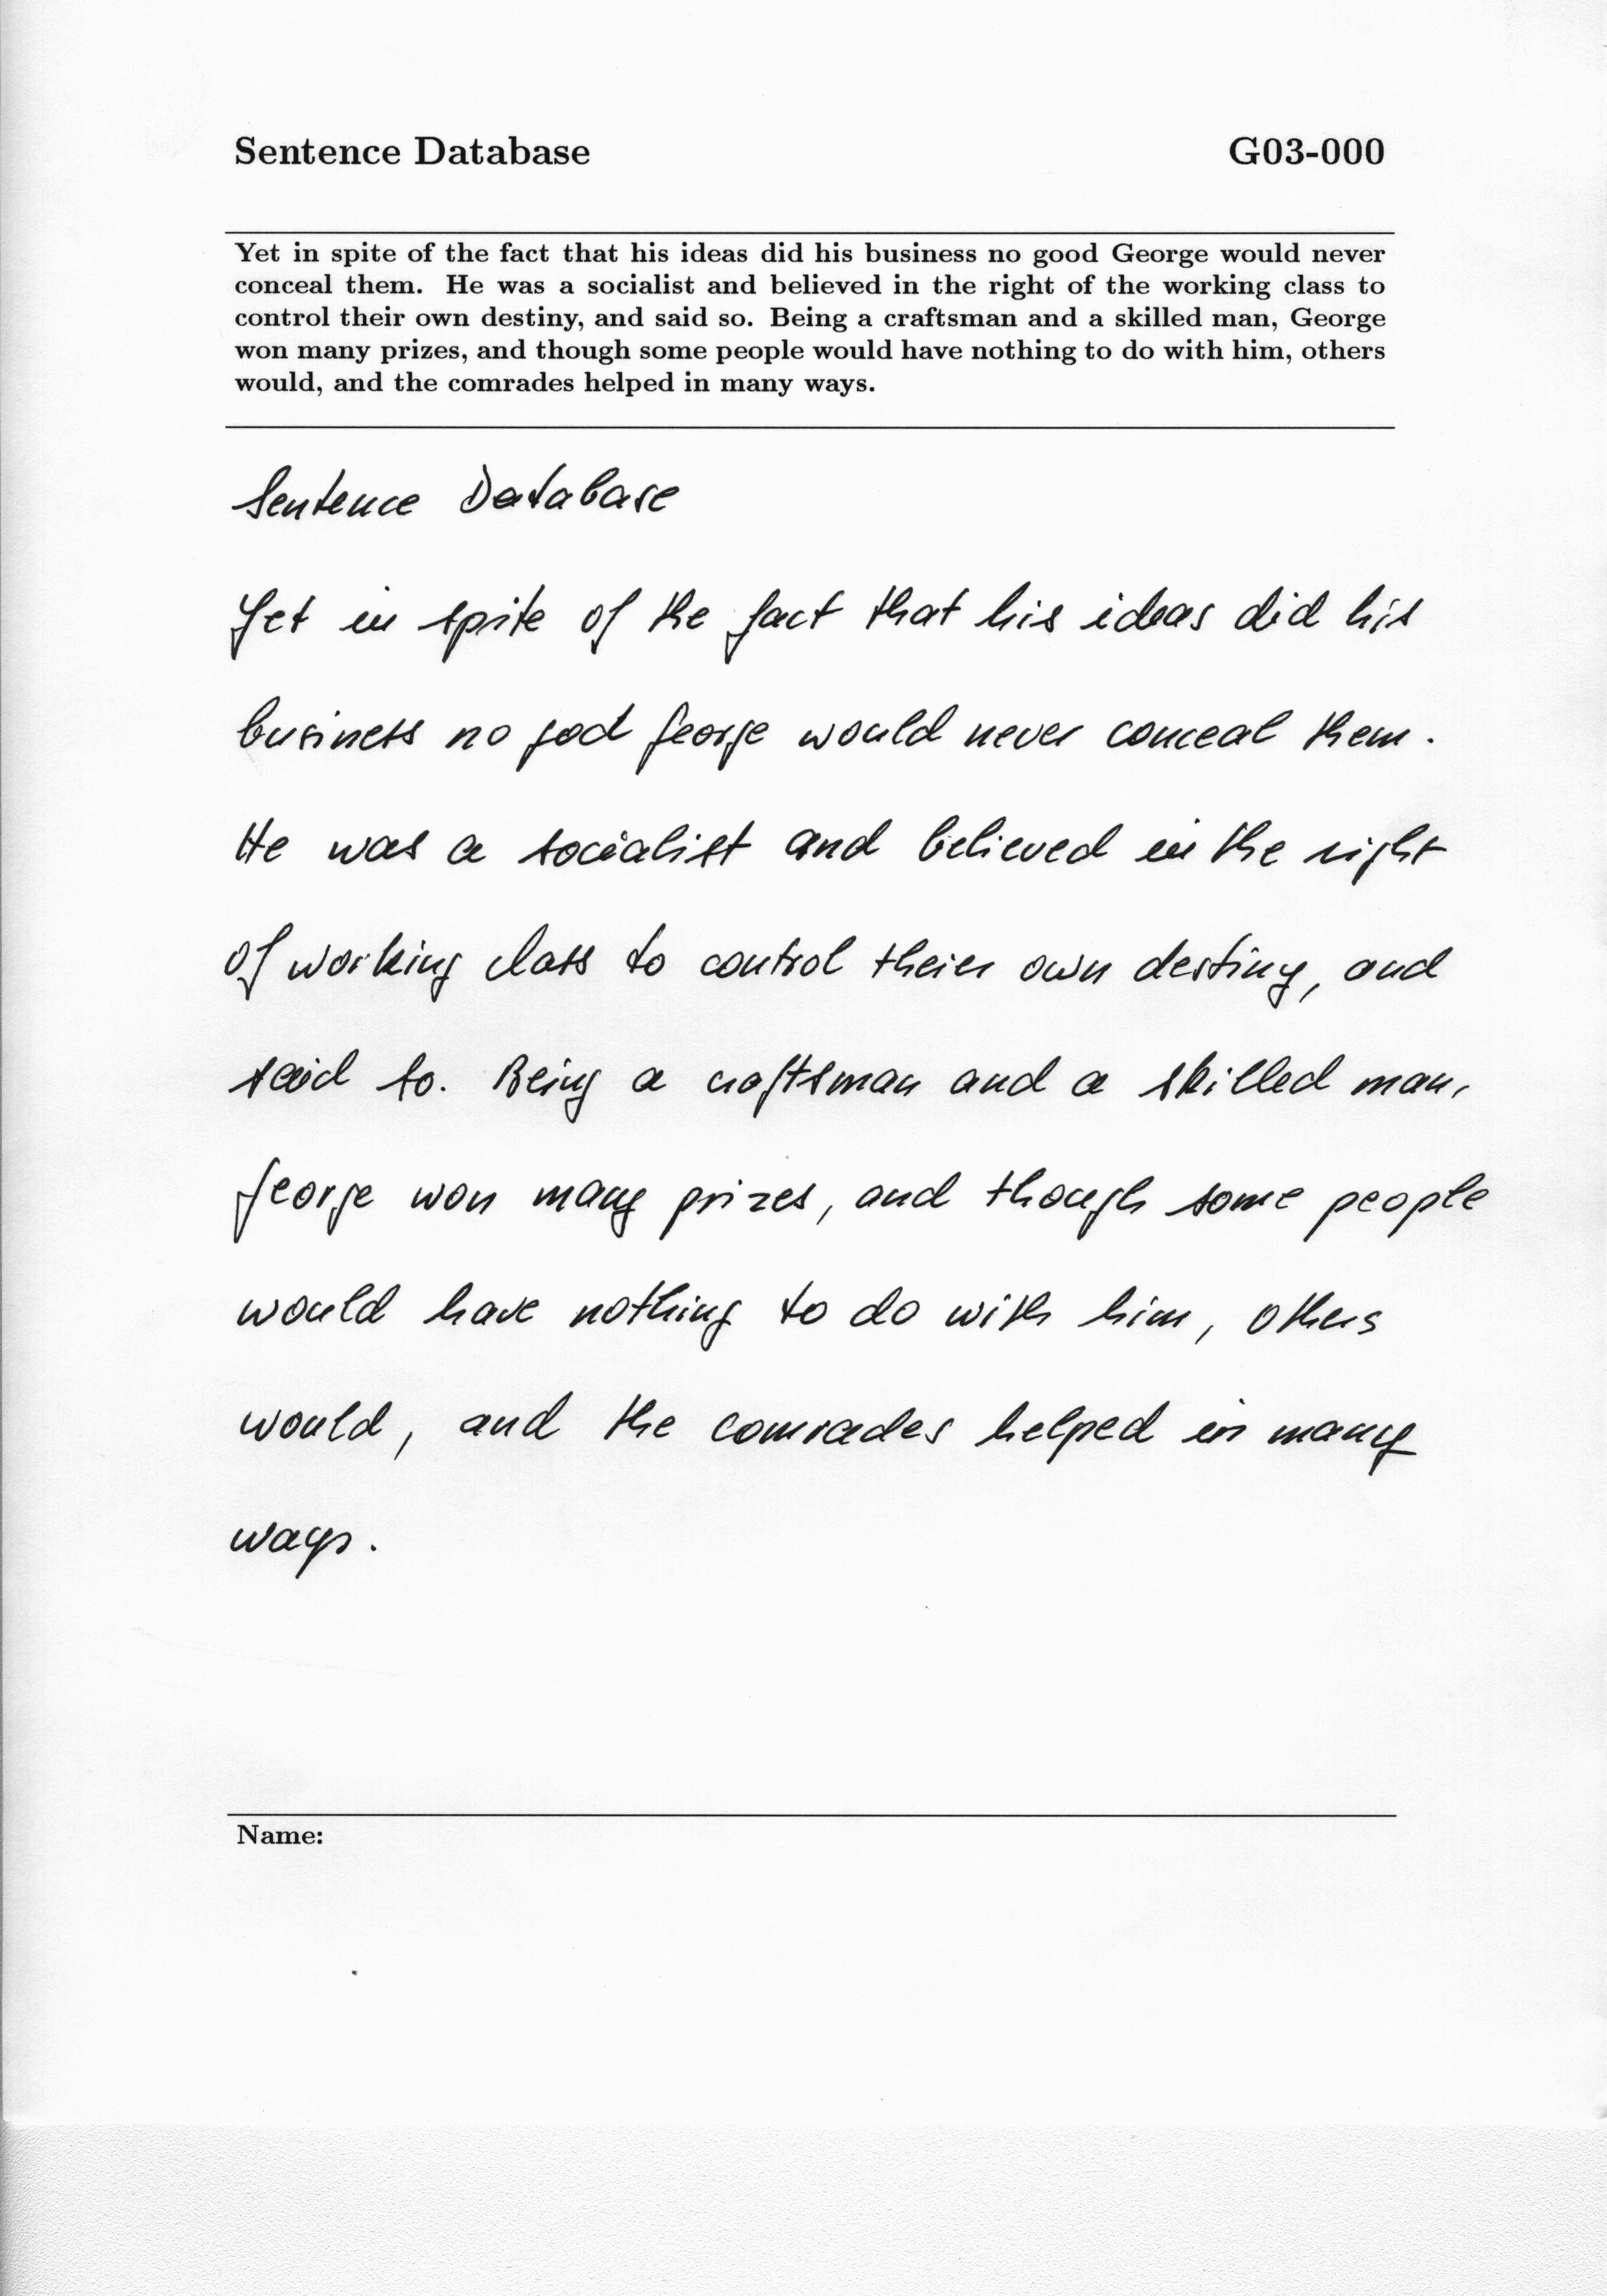 Sentence Database G03-000
Yet in spite of the fact that his ideas did his business no good George would never
conceal them. He was a socialist and believed in the right of the working class to
control their own destiny, and said so. Being a craftsman and a skilled man, George
won many prizes, and though some people would have nothing to do with him, others
would, and the comrades helped in many ways.
Sentence Database
Yet in spite of the fact that his ideas did his
business no god George would never conceal them.
He was a socialist and believed in the right
of working class to control theier own destiny, and
said so. Being a craftsman and a skilled man,
George won many prizes, and though some people
would have nothing to do with him, others
would, and the comrades helped in many
ways.
Name: